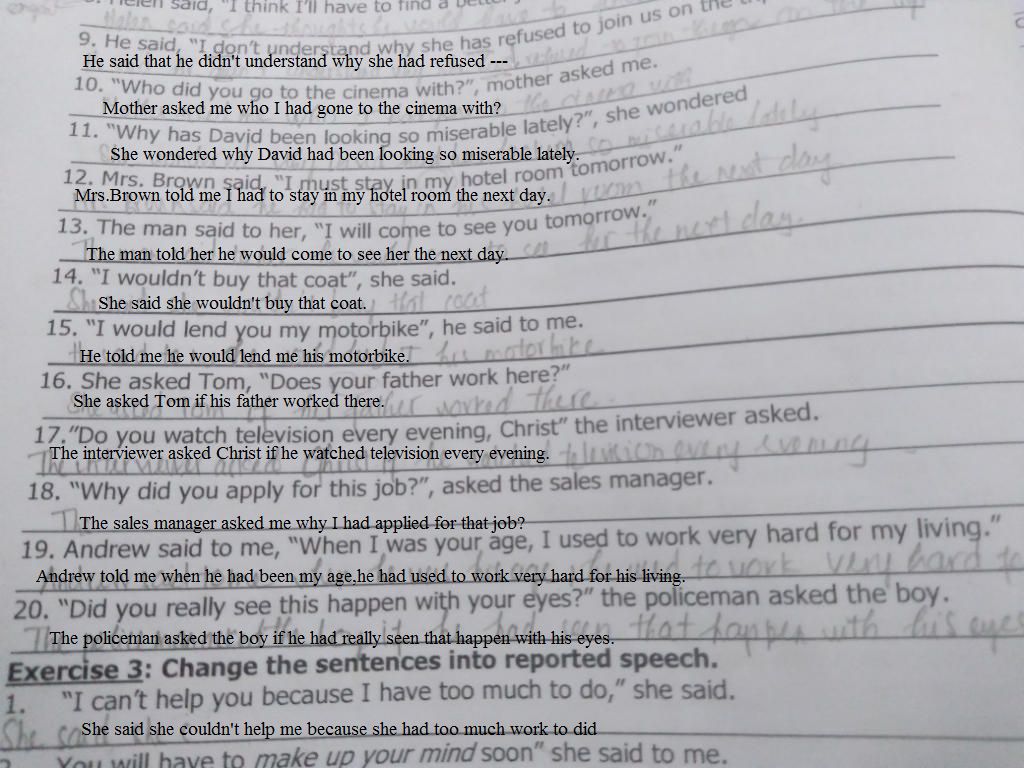 Helen said, "I think I'll have to find a
9. He said, "I don't understand why she has refused to join us on the
He said that he didn't understand why she had refused ---
10. "Who did you go to the cinema with?", mother asked me.
Mother asked me who I had gone to the cinema with?
11. "Why has David been looking so miserable lately?", she wondered
She wondered why David had been looking so miserable lately.
12. Mrs. Brown said, "I must stay in my hotel room tomorrow."
Mrs.Brown told me I had to stay in my hotel room the next day.
13. The man said to her, "I will come to see you tomorrow."
The man told her he would come to see her the next day.
14. "I wouldn't buy that coat", she said.
She said she wouldn't buy that coat.
15. "I would lend you my motorbike", he said to me.
He told me he would lend me his motorbike.
16. She asked Tom, "Does your father work here?"
She asked Tom if his father worked there.
17."Do you watch television every evening, Christ" the interviewer asked.
The interviewer asked Christ if he watched television every evening.
18. "Why did you apply for this job?", asked the sales manager.
The sales manager asked me why I had applied for that job?
19. Andrew said to me, "When I was your age, I used to work very hard for my living."
Andrew told me when he had been my age,he had used to work very hard for his living.
20. "Did you really see this happen with your eyes?" the policeman asked the boy.
The policeman asked the boy if he had really seen that happen with his eyes.
Exercise 3: Change the sentences into reported speech.
1. "I can't help you because I have too much to do," she said.
She said she couldn't help me because she had too much work to did
You will have to make up your mind soon" she said to me.